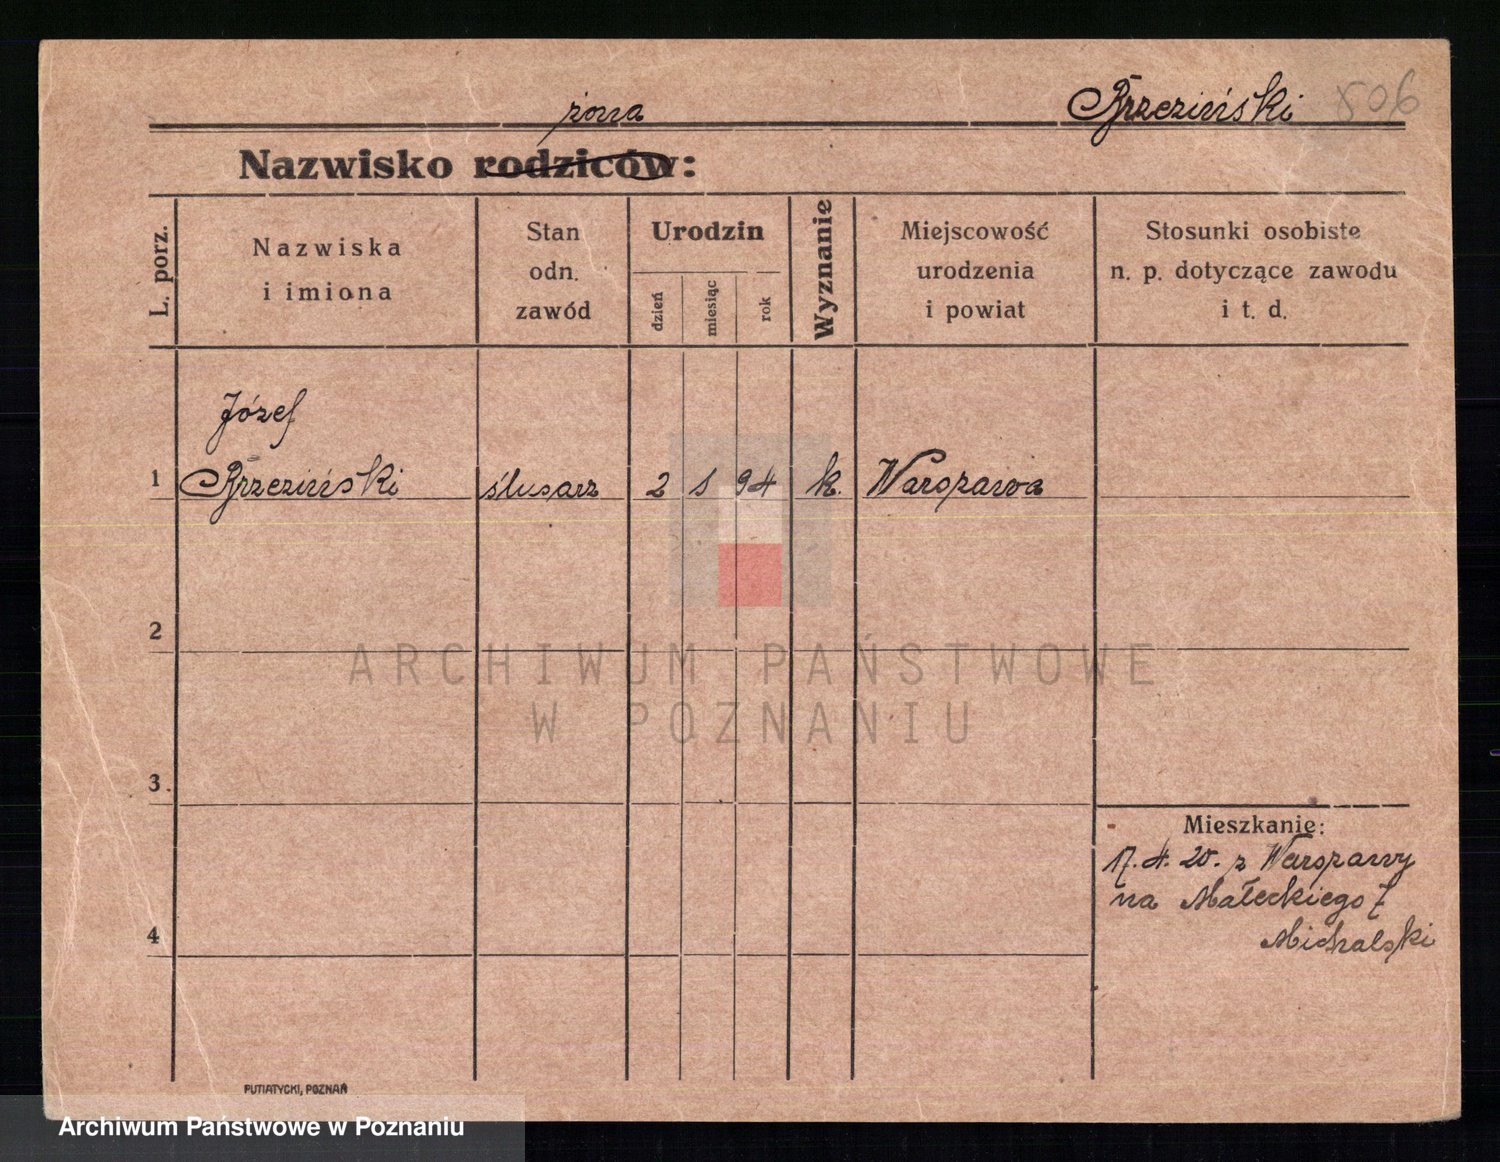 żona
Brzeziński 806
Nazwisko rodziców:
L. porz.
Nazwiska
i imiona
Stan
odn.
zawód
Urodzin
dzień
miesiąc
rok
Wyznanie
Miejscowość
urodzenia
i powiat
Stosunki osobiste
n. p. dotyczące zawodu
i t. d.
Józef
1 Brzeziński ślusarz 2 1 94 k. Warszawa
2
3.
4
Mieszkanie:
17.4.20. z Warszawy
na Małeckiego 7
Michalski
PUTIATYCKI, POZNAŃ
ARCHIWUM PAŃSTWOWE
W POZNANIU
Archiwum Państwowe w Poznaniu